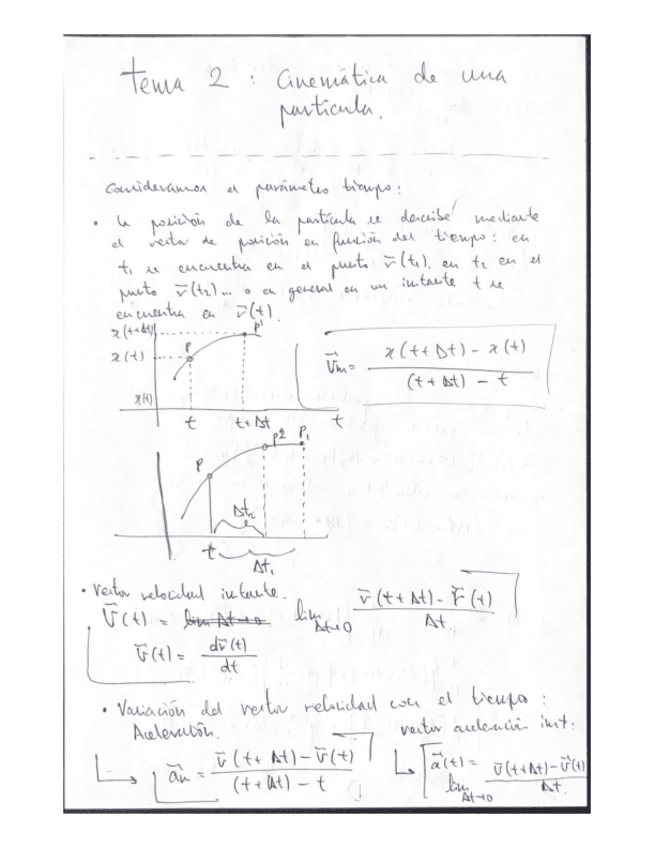 tema 2 : Cinemática de una
partícula.
Consideramos el parámetro tiempo:
• la posición de la partícula se describe mediante
el vector de posición en función del tiempo: en
t₁ se encuentra en el punto r̄(t₁), en t₂ en el
punto r̄(t₂)... o en general en un instante t se
encuentra en r̄(t).
x(t+Δt) P'
x(t) P
x(t)
t t+Δt t
v⃗m = x(t+Δt) - x(t) / (t+Δt) - t
P P2 P1
Δt₂
t Δt₁
• Vector velocidad instante.
v̄(t) = lim Δt→0 lim Δt→0 r̄(t+Δt) - r̄(t) / Δt
v̄(t) = dr̄(t) / dt
• Variación del vector velocidad con el tiempo:
Aceleración. vector aceleración inst:
a⃗m = v̄(t+Δt) - v̄(t) / (t+Δt) - t
a⃗(t) = lim Δt→0 v̄(t+Δt) - v̄(t) / Δt.